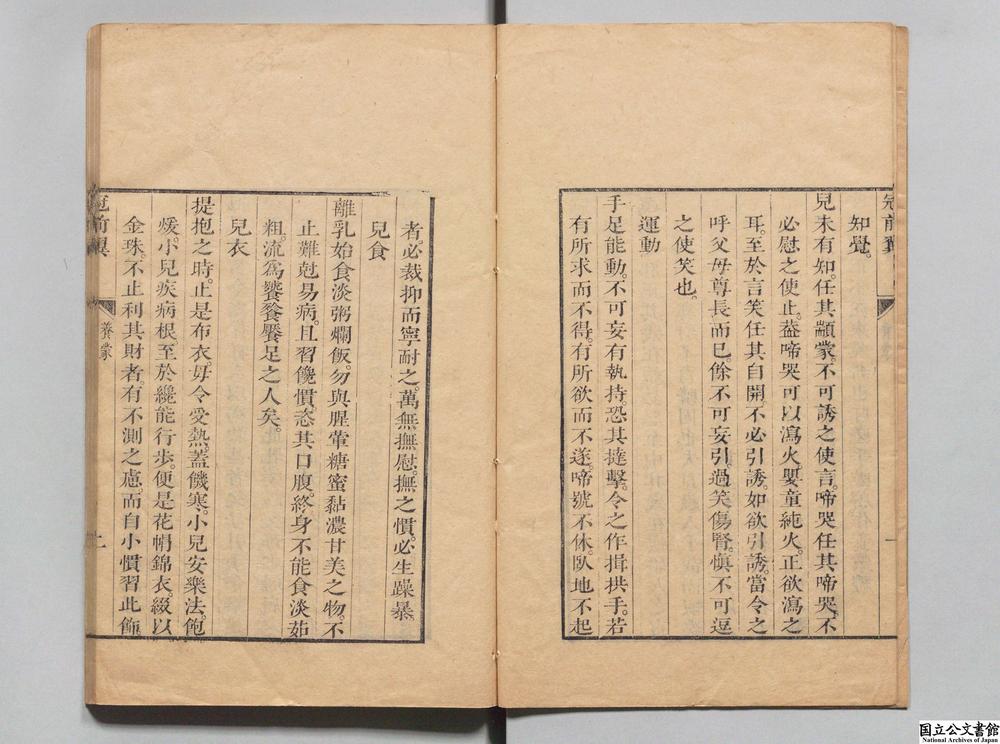 知覺。
兒未有知。任其顓蒙。不可誘之使言。啼哭任其啼哭。不
必慰之使止。葢啼哭可以瀉火。嬰童純火。正欲瀉之
耳。至於言笑任其自開。不必引誘。如欲引誘。當令之
呼父母尊長而已。餘不可妄引。過笑傷腎。愼不可逗
之使笑也。
運動
手足能動。不可妄有執持。恐其撻擊。令之作揖拱手。若
有所求而不得。有所欲而不遂。啼號不休。臥地不起
者。必裁抑而寧耐之。萬無撫慰。撫之慣。必生躁暴。
兒食
離乳始食淡粥爛飯。勿與腥葷糖蜜黏濃甘美之物。不
止難尅易病。且習饞慣。恣其口腹。終身不能食淡茹
粗。流爲饕餮饜足之人矣。
兒衣
提抱之時。止是布衣。毋令受熱。蓋饑寒。小兒安樂法。飽
煖。小兒疾病根。至於纔能行步。便是花帽錦衣。綴以
金珠。不止利其財者。有不測之慮。而自小慣習此飾
冠前翼
養蒙
国立公文書館
National Archives of Japan